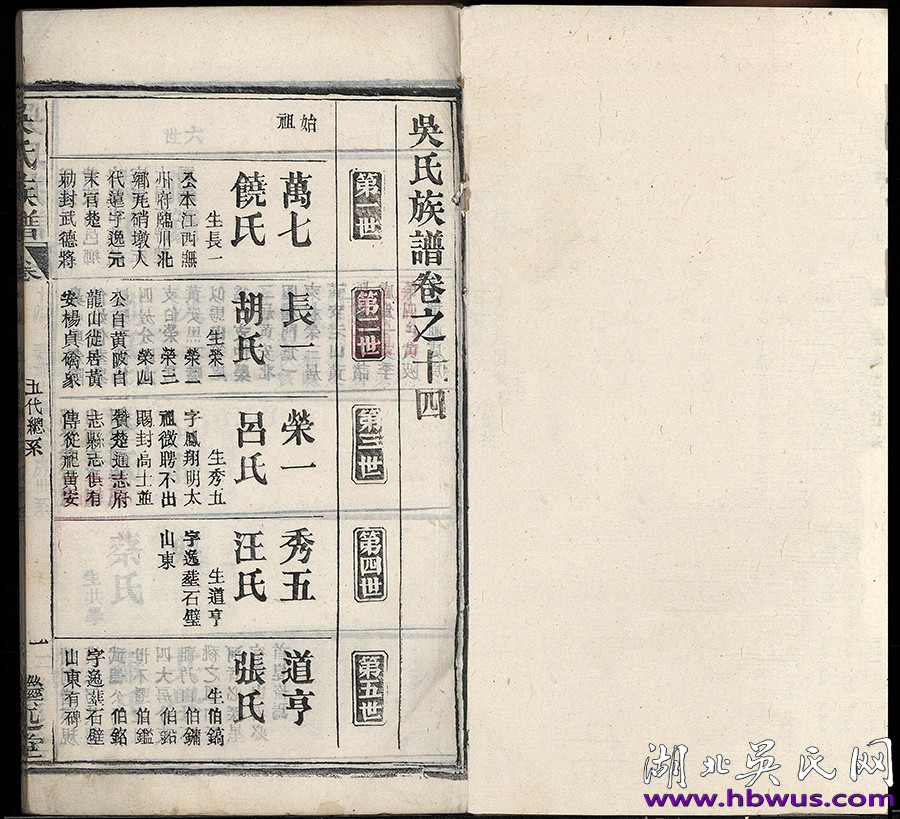 吳氏族譜卷之十四
第一世
始祖
萬七
饒氏
生長一
公本江西撫
州府臨川北
鄉
代遠字逸元
末官楚邑鄉
勅封武德將
第二世
長一
胡氏
生榮一
榮二
榮三
榮四
公自黃陂自
龍山徙居黃
安楊貞礄家
第三世
榮一
呂氏
生秀五
字鳳翔明太
祖徵聘不出
賜封高士並
贊楚通志府
志縣志俱有
傳從祀黃安
第四世
秀五
汪氏
生道亨
字逸 石壁
山東
第五世
道亨
張氏
生伯鎬
伯鏞
伯鉛
伯鑑
伯銘
字逸 石壁
山東有碑
吳氏族譜
卷
五代總系
一
湖北吳氏网
www.hbwus.com